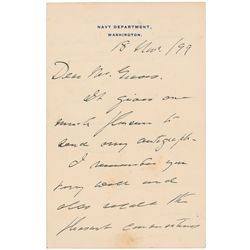 NAVY DEPARTMENT,
WASHINGTON.
18 Nov. /99
Dear Mr.
It gives me
much pleasure to
send my autograph.
I remember you
very well and
also recall the
pleasant conversations